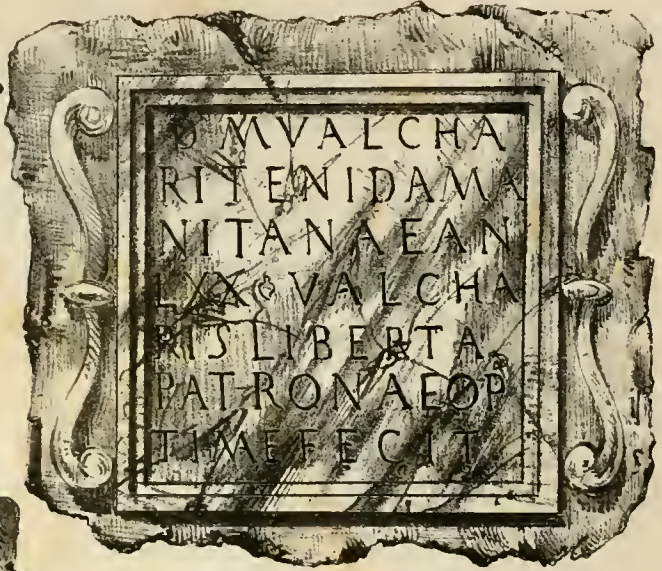 D M VALCHA
RITENIDAMA
NITANAEAN
LXX VALCHA
RIS LIBERTA
PATRONAEOP
TIMEFECIT